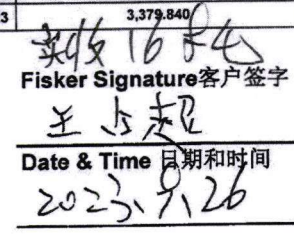 3 3,379.840
实收16托
Fisker Signature客户签字
王占超
Date & Time 日期和时间
2023、8、26